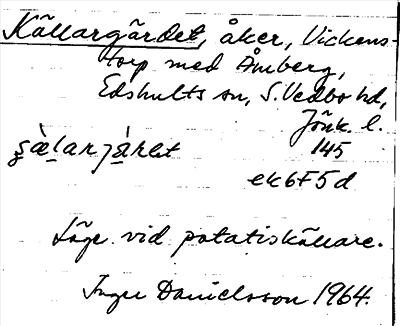 Källargärdet, åker, Vickens-
torp med Åmberg,
Edshults sn, S.Vedbo hd,
Jönk. l.
145
ek6F5d
Läge vid potatiskällare.
Inger Danielsson 1964.